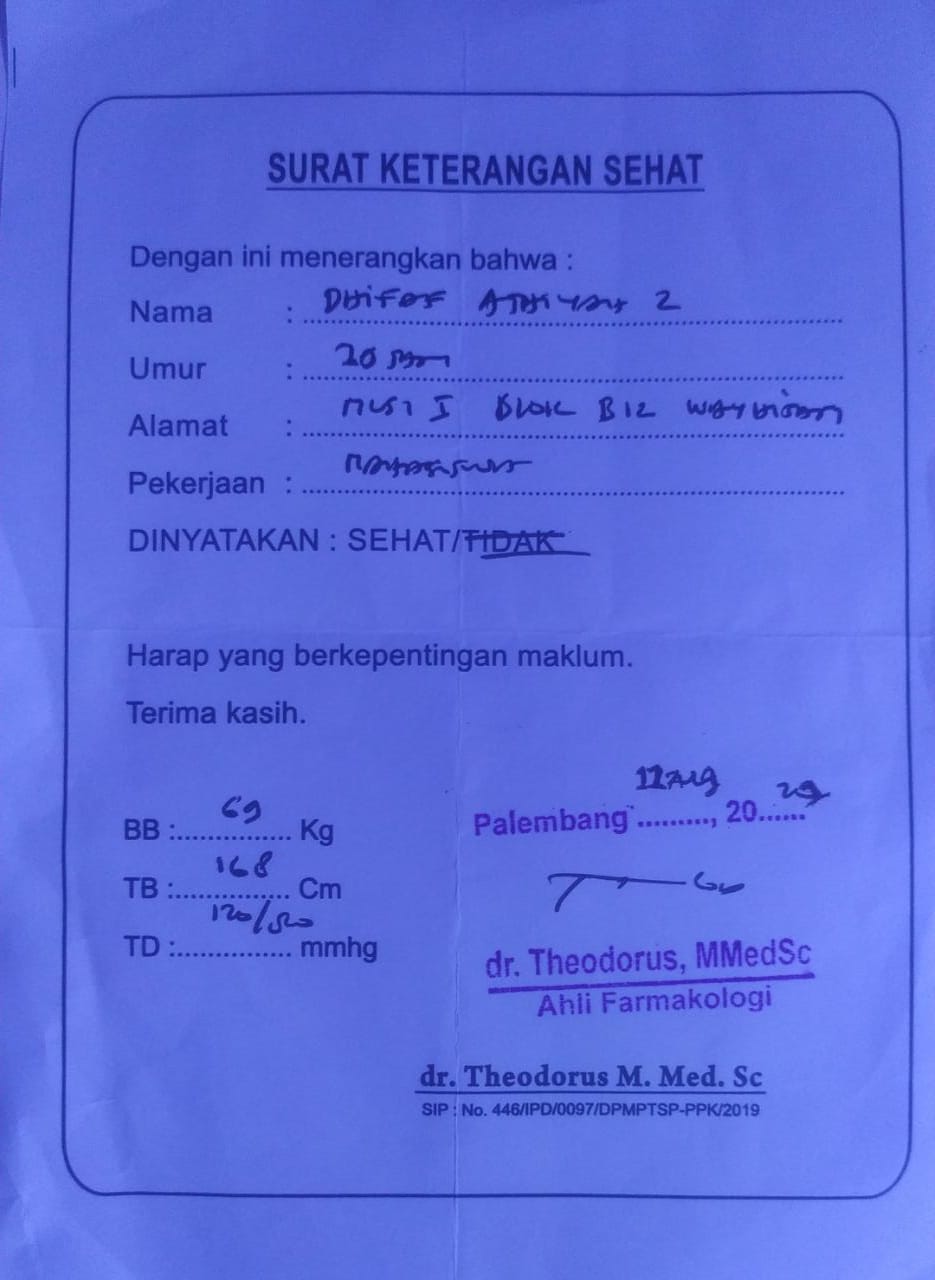 SURAT KETERANGAN SEHAT
Dengan ini menerangkan bahwa :
Nama : 2
Umur : 20
Alamat : I BLOK B12
Pekerjaan :
DINYATAKAN : SEHAT/TIDAK
Harap yang berkepentingan maklum.
Terima kasih.
BB : 69 Kg
TB : 168 Cm
TD : 120/ mmhg
Palembang, 20
dr. Theodorus, MMedSc
Ahli Farmakologi
dr. Theodorus M. Med. Sc
SIP : No. 446/IPD/0097/DPMPTSP-PPK/2019